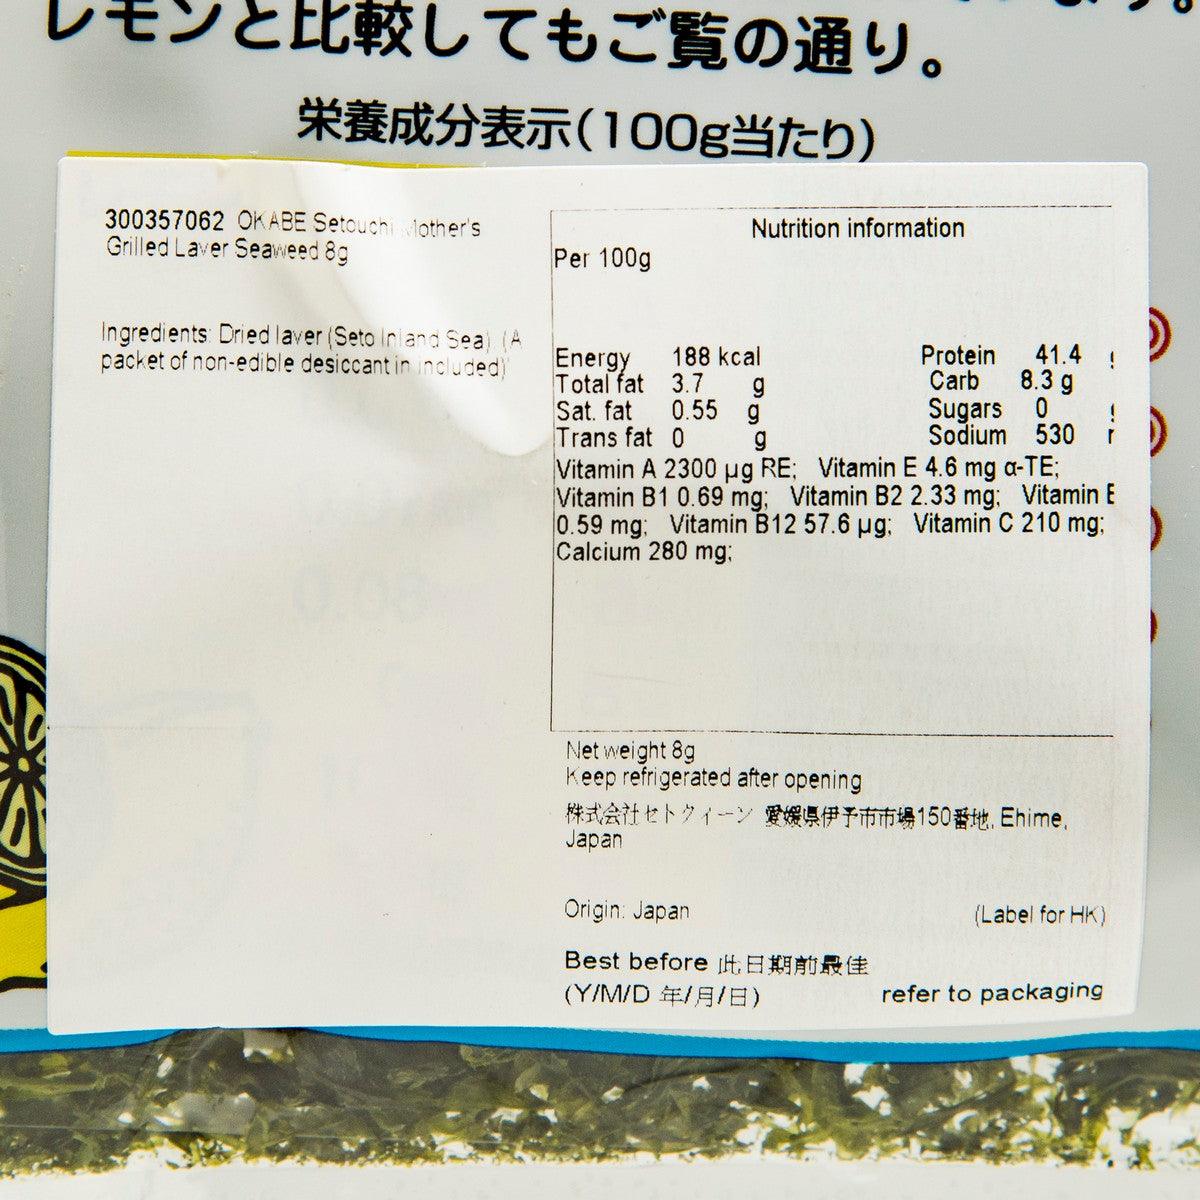 レモンと比較してもご覧の通り。
栄養成分表示(100g当たり)
300357062 OKABE Setouchi Mother's
Grilled Laver Seaweed 8g
Ingredients: Dried laver (Seto Inland Sea). (A
packet of non-edible desiccant in included)
Nutrition information
Per 100g
Energy 188 kcal Protein 41.4
Total fat 3.7 g Carb 8.3 g
Sat. fat 0.55 g Sugars 0
Trans fat 0 g Sodium 530
Vitamin A 2300 µg RE; Vitamin E 4.6 mg α-TE;
Vitamin B1 0.69 mg; Vitamin B2 2.33 mg; Vitamin
0.59 mg; Vitamin B12 57.6 µg; Vitamin C 210 mg;
Calcium 280 mg;
Net weight 8g
Keep refrigerated after opening
株式会社セトクイーン 愛媛県伊予市市場150番地, Ehime,
Japan
Origin: Japan (Label for HK)
Best before 此日期前最佳
(Y/M/D 年/月/日) refer to packaging